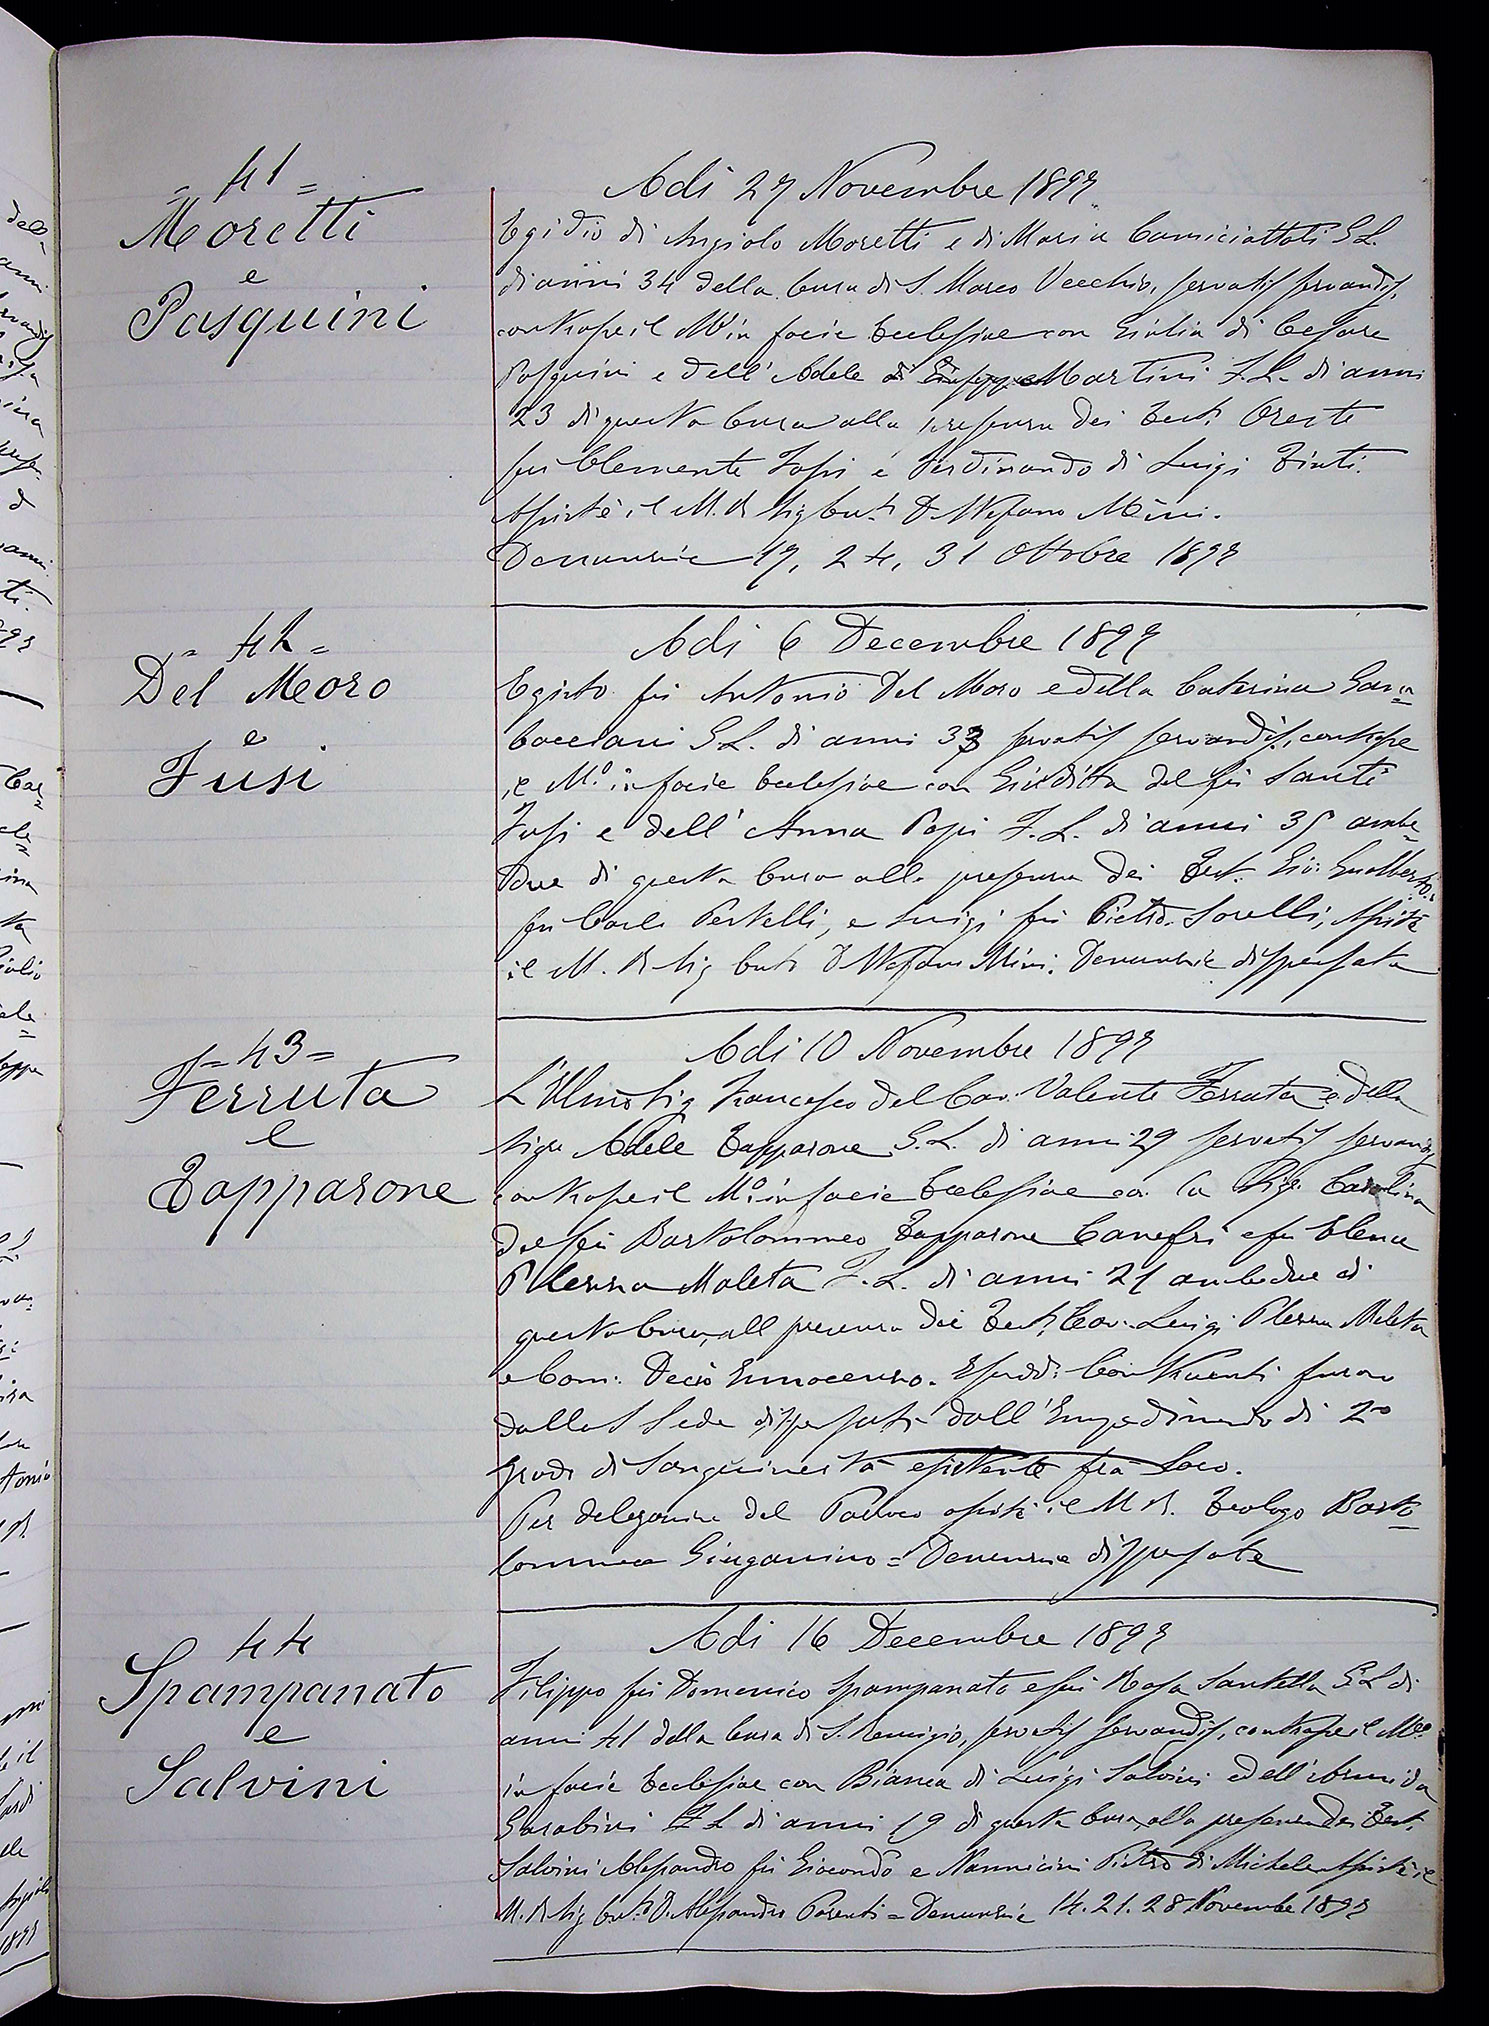 = 41 =
Moretti
e
Pasquini
Adi 27 Novembre 1897
Egidio di Angiolo Moretti e di Maria Camiciottoli G.L.
di anni 34 della Cura di S. Marco Vecchio, servatis servandis,
contrasse il Mo in facie Ecclesiae con Giulia di Cesare
Pasquini e dell' Adele di Giuseppe Martini F.L. di anni
23 di questa Cura alla presenza dei Test. Oreste
fu Clemente Fossi e Ferdinando di Luigi Tinti.
Assistè il M. R Sig Cur. D Stefano Mini.
Denunzie 17, 24, 31 Ottobre 1897
= 42 =
Del Moro
e
Fusi
Adi 6 Decembre 1897
Egisto fu Antonio Del Moro e della Caterina Gar=
bocciani G.L. di anni 33 servatis servandis, contrasse
il Mo. in facie Ecclesiae con Giuditta del fu Santi
Fusi e dell' Anna Papi F.L. di anni 35 ambe=
due di questa Cura alla presenza dei Test. Gio: Gualberto
fu Carlo Pestelli, e Luigi fu Pietro Sorelli, Assistè
il M. R Sig Cur D Stefano Mini. Denunzie dispensate
= 43 =
Ferruta
e
Tapparone
Adi 10 Novembre 1897
L'Illmo Sig Francesco del Cav. Valente Ferruta e della
Sigra Adele Tapparone G.L. di anni 29 servatis servandis
contrasse il Mo in facie Ecclesiae con la Sig. Carolina
del fu Bartolommeo Tapparone Canefri e fu Elena
Plezza Maleta F.L. di anni 21 ambedue di
questa Cura, all presenza dei Test. Cav. Luigi Plezza Maleta
e Com: Decio Innocenzo. E sudd. Contraenti furono
dalla S Sede dispensati dall' Impedimento di 2o
grado di Sanguineità esistente fra Loro.
Per delegazione del Parroco assistè il M R. Teologo Barto=
lommeo Giuganino = Denunzie dispensate
44
Spampanato
e
Salvini
Adi 16 Decembre 1897
Filippo fu Domenico Spampanato e fu Rosa Santella G L di
anni 41 della Cura di S. Remigio, servatis servandis, contrasse il Mo
in facie Ecclesiae con Bianca di Luigi Salvini e dell' Armida
Garabini F L di anni 19 di questa Cura, alla presenza dei Test.
Salvini Alessandro fu Giocondo e Nannicini Pietro di Michele Assistè il
M. R Sig Cur. D. Alessandro Parenti = Denunzie 14. 21. 28 Novembe 1897